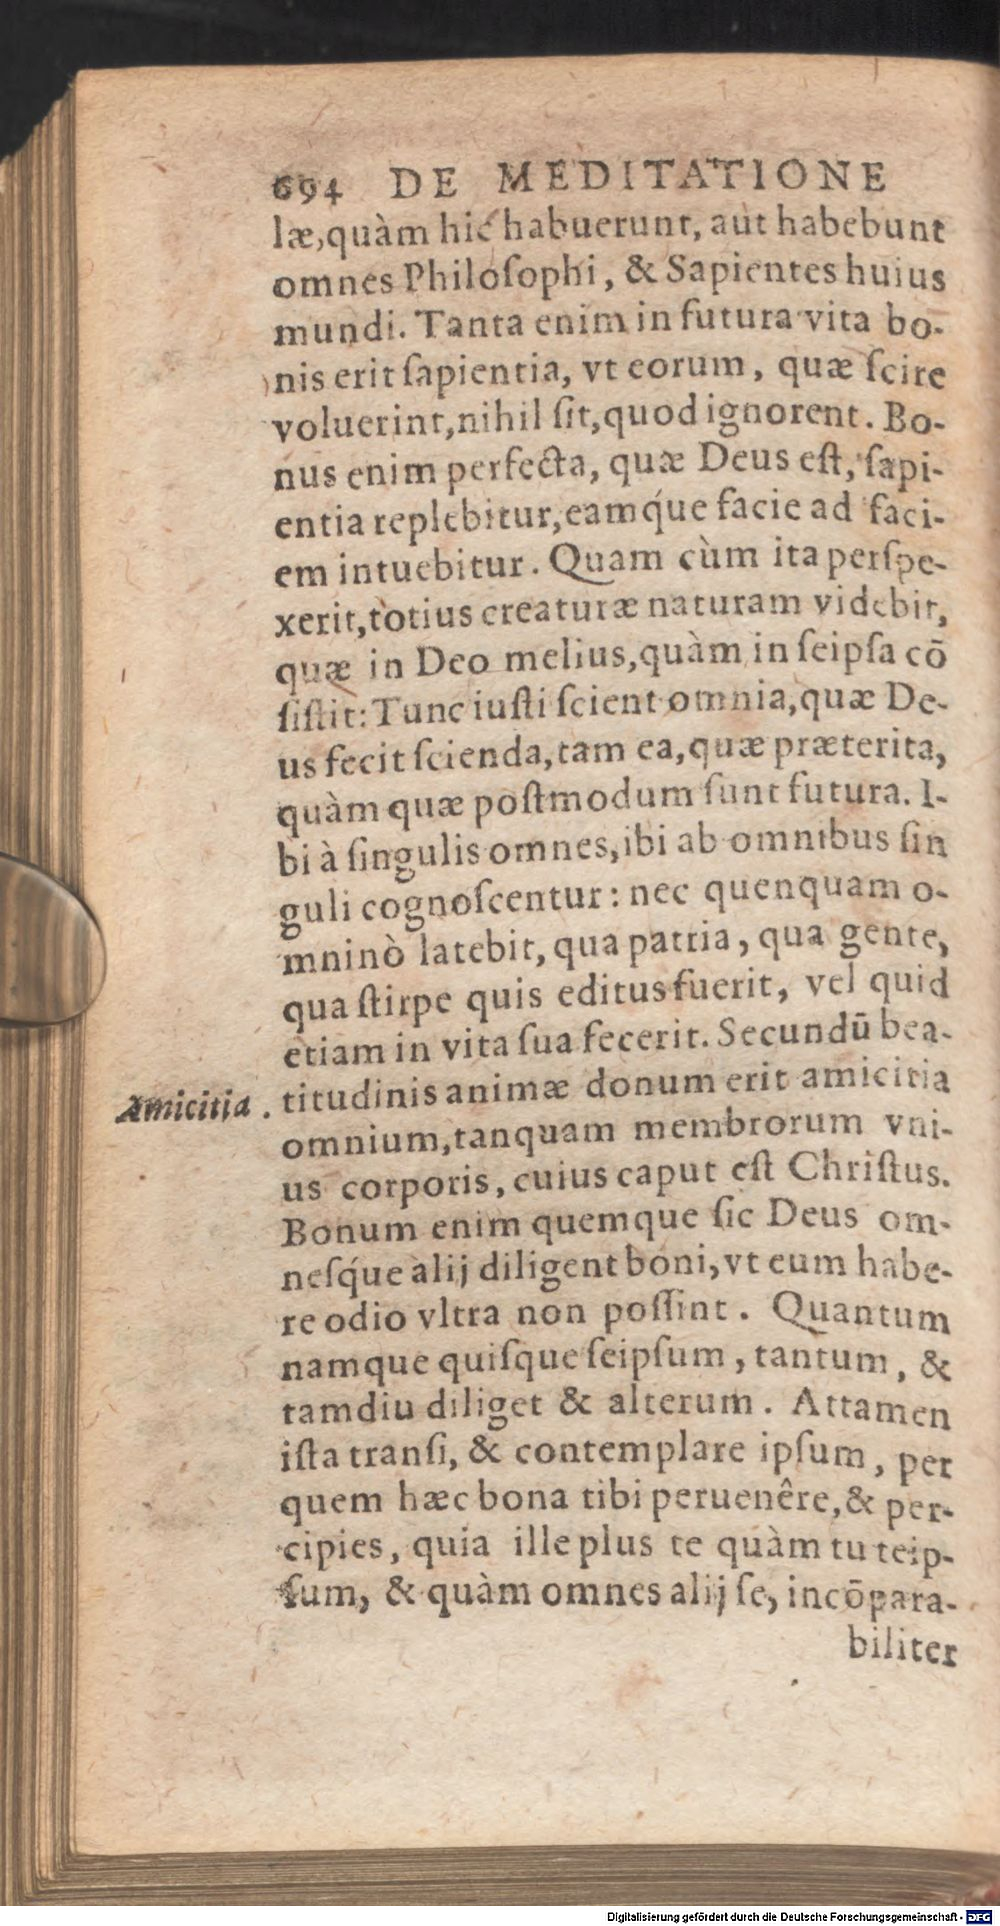 694 DE MEDITATIONE
læ, quàm hic habuerunt, aut habebunt
omnes Philoſophi, & Sapientes huius
mundi. Tanta enim in futura vita bo-
nis erit ſapientia, vt eorum, quæ ſcire
voluerint, nihil ſit, quod ignorent. Bo-
nus enim perfecta, quæ Deus eſt, ſapi-
entia replebitur, eamq́ue facie ad faci-
em intuebitur. Quam cùm ita perſpe-
xerit, totius creaturæ naturam videbit,
quæ in Deo melius, quàm in ſeipſa cō
ſiſtit: Tunc iuſti ſcient omnia, quæ De-
us fecit ſcienda, tam ea, quæ præterita,
quàm quæ poſtmodum ſunt futura. I-
bi à ſingulis omnes, ibi ab omnibus ſin
guli cognoſcentur: nec quenquam o-
mninò latebit, qua patria, qua gente,
qua ſtirpe quis editus fuerit, vel quid
etiam in vita ſua fecerit. Secundū bea-
Amicitia. titudinis animæ donum erit amicitia
omnium, tanquam membrorum vni-
us corporis, cuius caput eſt Chriſtus.
Bonum enim quemque ſic Deus om-
neſq́ue alij diligent boni, vt eum habe-
re odio vltra non poſſint. Quantum
namque quiſque ſeipſum, tantum, &
tamdiu diliget & alterum. Attamen
iſta tranſi, & contemplare ipſum, per
quem hæc bona tibi peruenêre, & per-
cipies, quia ille plus te quàm tu teip-
ſum, & quàm omnes alij ſe, incōpara-
biliter
Digitalisierung gefördert durch die Deutsche Forschungsgemeinschaft - DFG